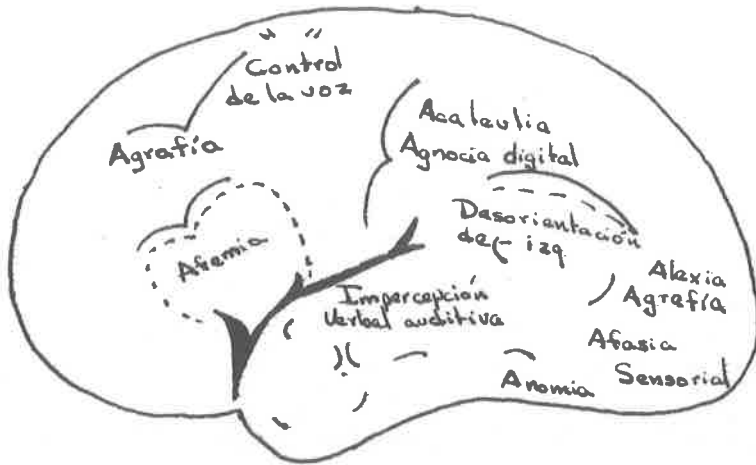 Control
de la voz
Agrafía
Acalculia
Agnocia digital
Afemia
Desorientación
de(- izq
Impercepción
Verbal auditiva
Alexia
Agrafía
Afasia
Sensorial
Anomia